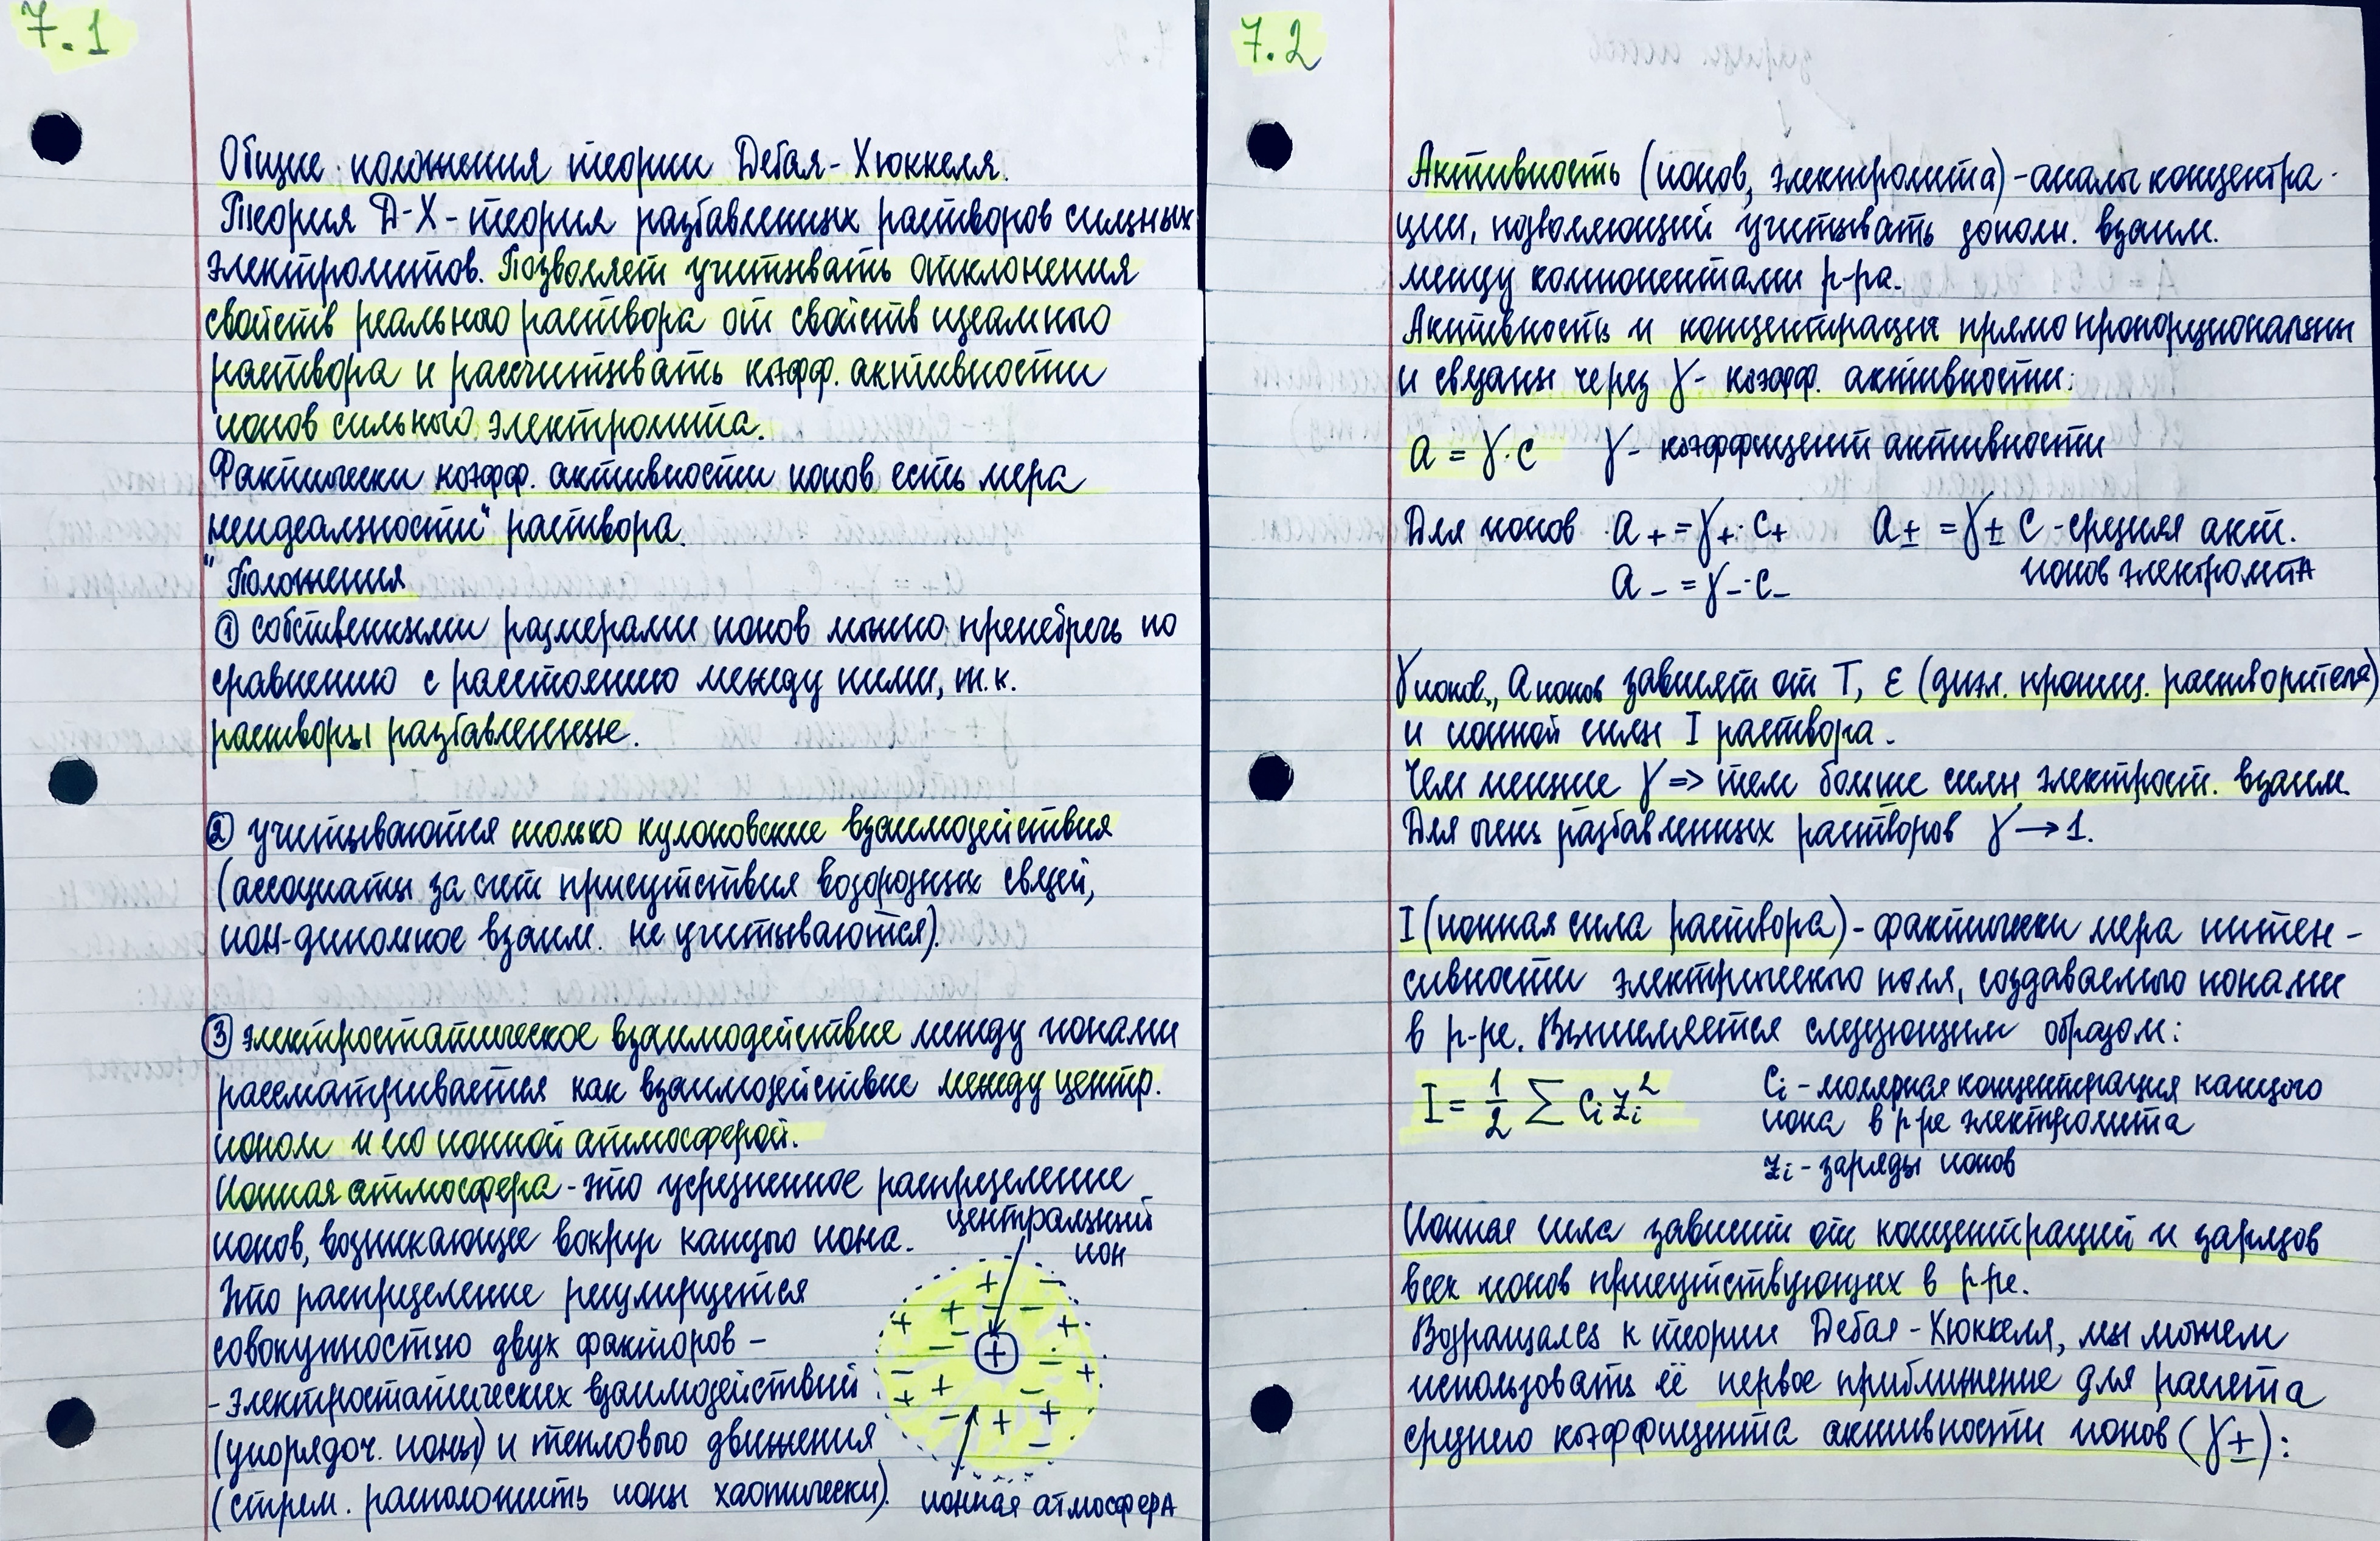 7.1
Общие положения теории Дебая-Хюккеля.
Теория Д-Х - теория разбавленных растворов сильных
электролитов. Позволяет учитывать отклонения
свойств реального раствора от свойств идеального
раствора и рассчитывать коэфф. активности
ионов сильного электролита.
Фактически коэфф. активности ионов есть мера
"неидеальности" раствора.
Положения
① собственными размерами ионов можно пренебречь по
сравнению с расстоянию между ними, т.к.
растворы разбавленные.
② учитываются только кулоновские взаимодействия
(ассоциаты за счет присутствия водородных связей,
ион-диполное взаим. не учитываются).
③ электростатическое взаимодействие между ионами
рассматривается как взаимодействие между центр.
ионом и его ионной атмосферой.
Ионная атмосфера - это усредненное распределение
ионов, возникающее вокруг каждого иона.
центральный
ион
Это распределение регулируется
совокупностью двух факторов -
- электростатических взаимодействий
(упорядоч. ионы) и теплового движения
(стрем. расположить ионы хаотически).
ионная атмосфера
7.2
Активность (ионов, электролита) - аналог концентра-
ции, позволяющий учитывать дополн. взаим.
между компонентами р-ра.
Активность и концентрация прямо пропорциональны
и связаны через γ - коэфф. активности:
a = γ·c γ - коэффициент активности
Для ионов a+ = γ+·c+ a± = γ± c - средняя акт.
ионов электролита
a- = γ-·c-
γ ионов, a ионов зависят от T, ε (диэл. прониц. растворителя)
и ионной силы I раствора.
Чем меньше γ => тем больше силы электрост. взаим.
Для очень разбавленных растворов γ → 1.
I (ионная сила раствора) - фактически мера интен-
сивности электрического поля, создаваемого ионами
в р-ре. Вычисляется следующим образом:
I = 1/2 ∑ ci zi²
ci - молярная концентрация каждого
иона в р-ре электролита
zi - заряды ионов
Ионная сила зависит от концентраций и зарядов
всех ионов присутствующих в р-ре.
Возращаясь к теории Дебая-Хюккеля, мы можем
использовать её первое приближение для расчета
среднего коэффицента активности ионов (γ±):